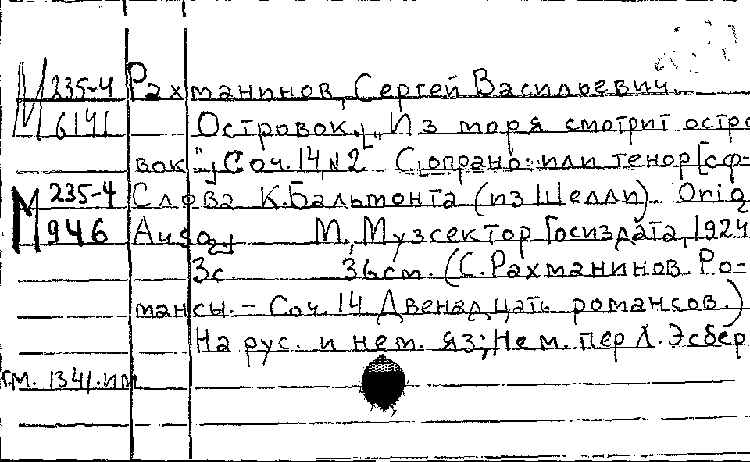 М 235-4 Рахманинов, Сергей Васильевич.
6141 Островок. „Из моря смотрит остро
вок", Соч. 14 №2 Сопрано или тенор [с ф-
М 235-4 Слова К. Бальмонта (из Шелли). Orig
946 Ausg. М., Музсектор Госиздата, 1924
3с 36см. (С. Рахманинов. Ро-
мансы. - Соч. 14 Двенадцать романсов.)
На рус. и нем. яз; Нем. пер Л. Эсбер
1341